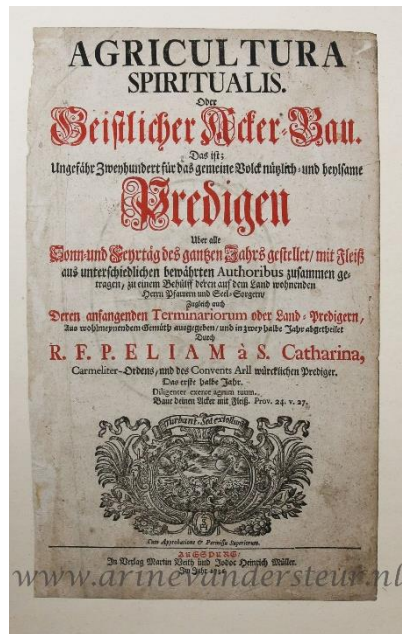 AGRICULTURA
SPIRITUALIS.
Oder
Geistlicher Acker-Bau.
Das ist:
Ungefähr Zweyhundert für das gemeine Volck nützlich- und heylsame
Predigen
Uber alle
Sonn- und Feyrtäg des gantzen Jahrs gestellet/ mit Fleiß
aus unterschiedlichen bewährten Authoribus zusammen ge-
tragen/ zu einem Behülff deren auf dem Land wohnenden
Herrn Pfarrern und Seel-Sorgern/
Zugleich auch
Deren anfangenden Terminariorum oder Land-Predigern/
Aus wohlmeynendem Gemüth ausgegeben/ und in zwey halbe Jahr abgetheilet
Durch
R. F. P. ELIAM à S. Catharina,
Carmeliter-Ordens/ und des Convents Aril würcklichen Prediger.
Das erste halbe Jahr.
Diligenter exerce agrum tuum.
Baue deinen Acker mit Fleiß. Prov. 24. v. 27.
Turbant, Sed extollunt
Cum Approbatione & Permissu Superiorum.
AUGSPURG/
In Verlag Martin Veith und Jodoc Heinrich Müller.
Im Jahr
www.arinevandersteur.nl